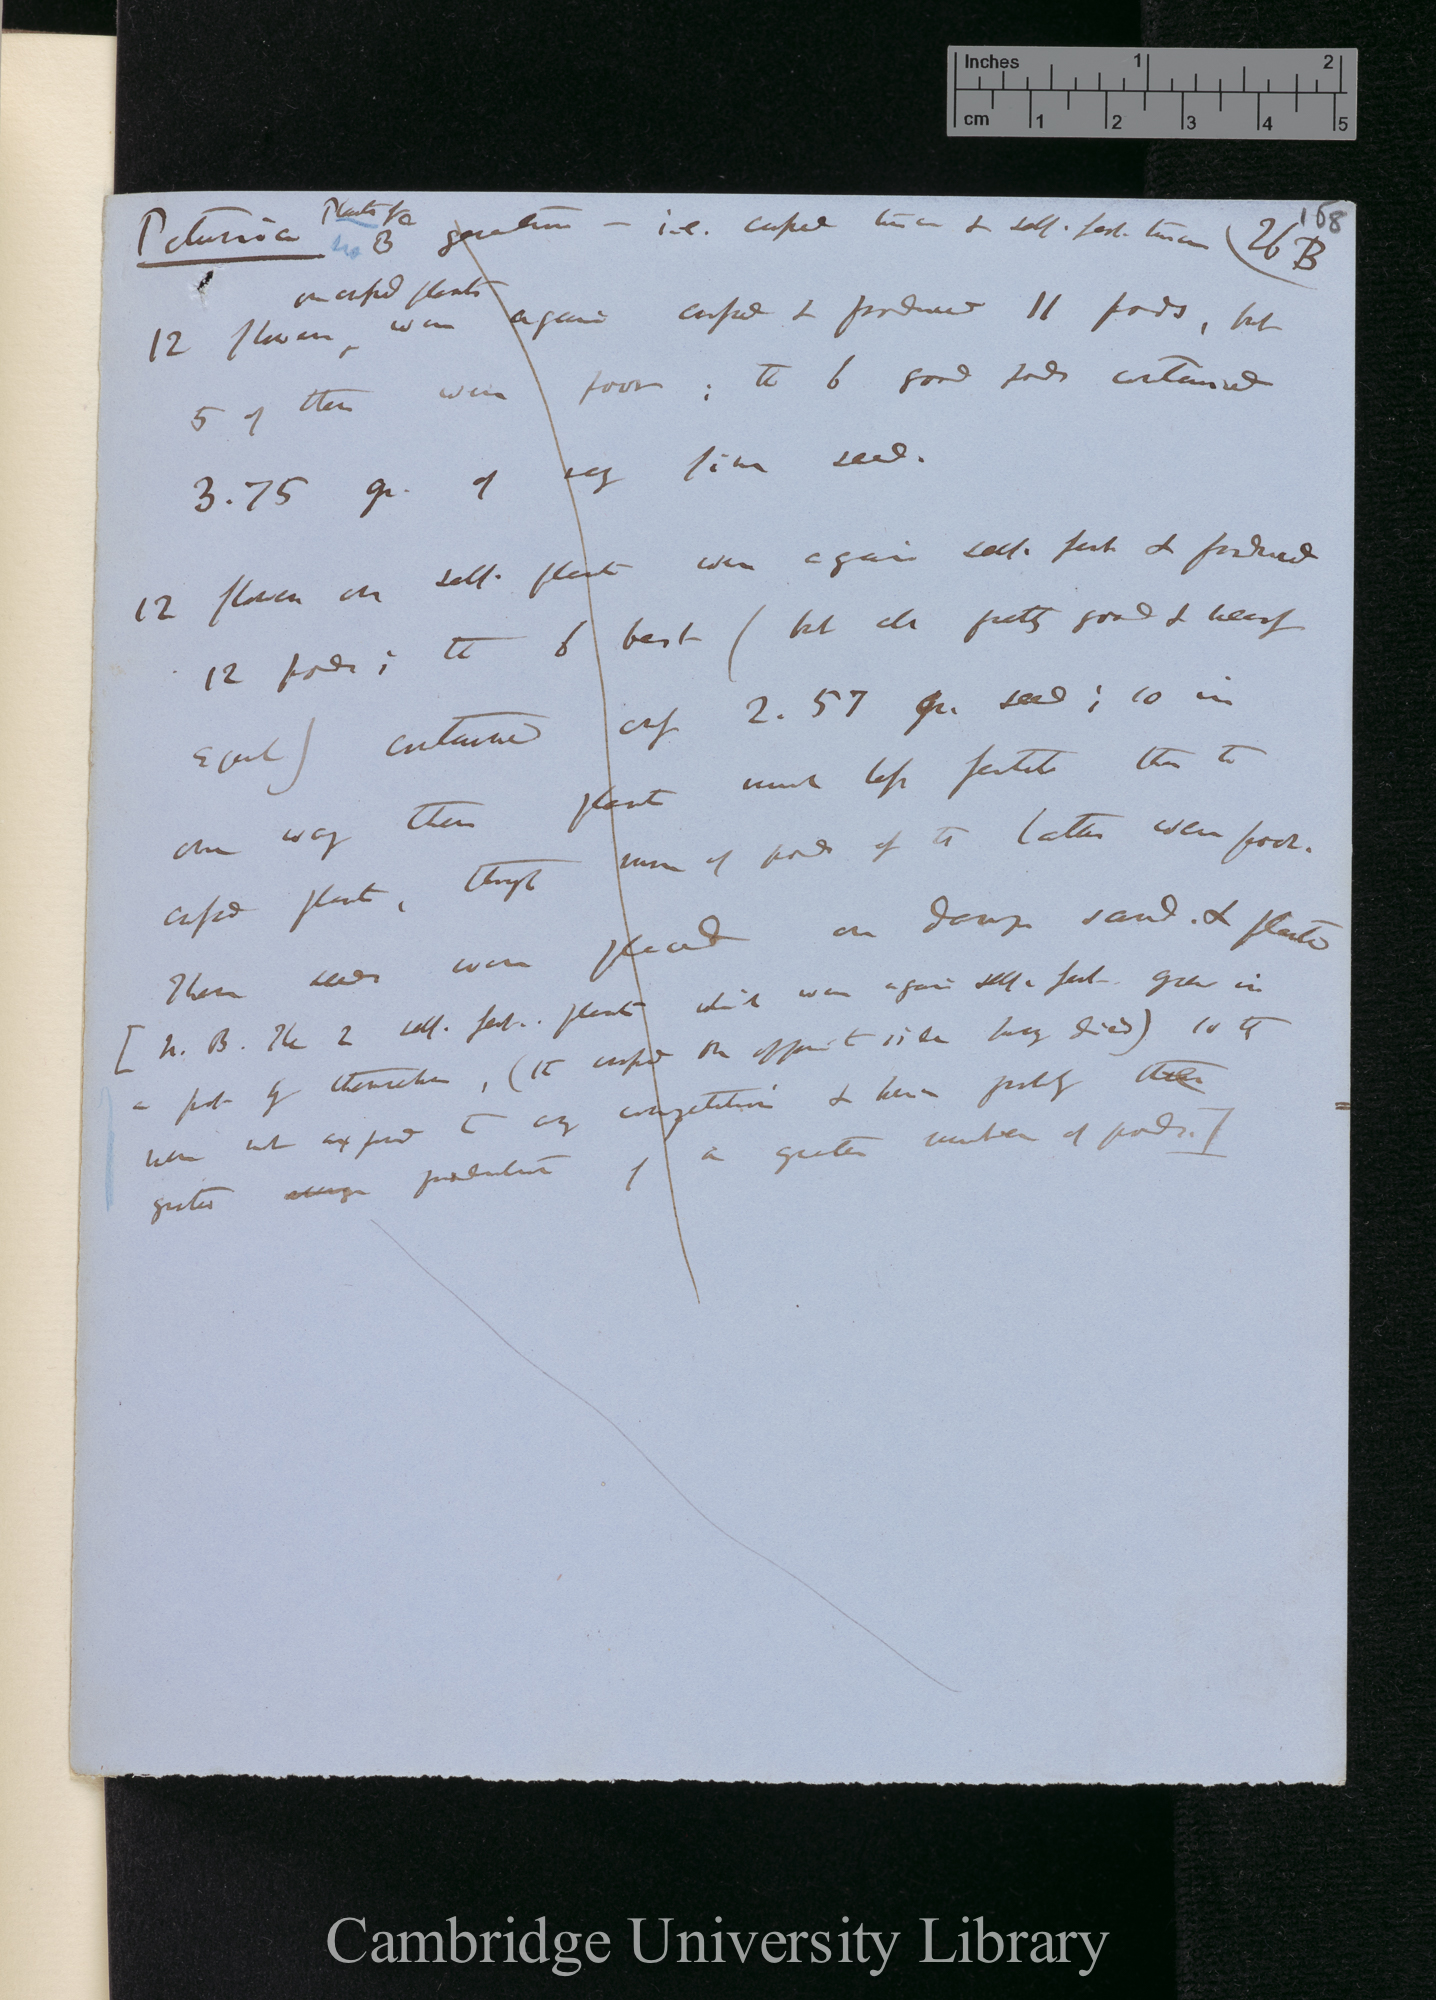 Inches 1 2
cm 1 2 3 4 5
168
Petunia Plants of a B generation — i.e. crossed twice & self-fert. twice (26 B
on crossed plants
12 flowers, were again crossed & produced 11 pods, but
5 of them were poor; the 6 good pods contained
3.75 gr. of very fine seed.
12 flowers on self. plants were again self. fert & produced
12 pods; the 6 best (but all pretty good & nearly
equal) contained only 2.57 gr. seed; so in
one way these plants much less fertile than the
crossed plants, though more of pods of the latter were poor.
These seeds were placed on damp sand. & planted
[N.B. The 2 self. fert. plants which were again self. fert. grew in
a pot by themselves, (the crossed on opposite side having died) so they
were not exposed to any competition & hence probably their
greater production of a greater number of pods.]
Cambridge University Library